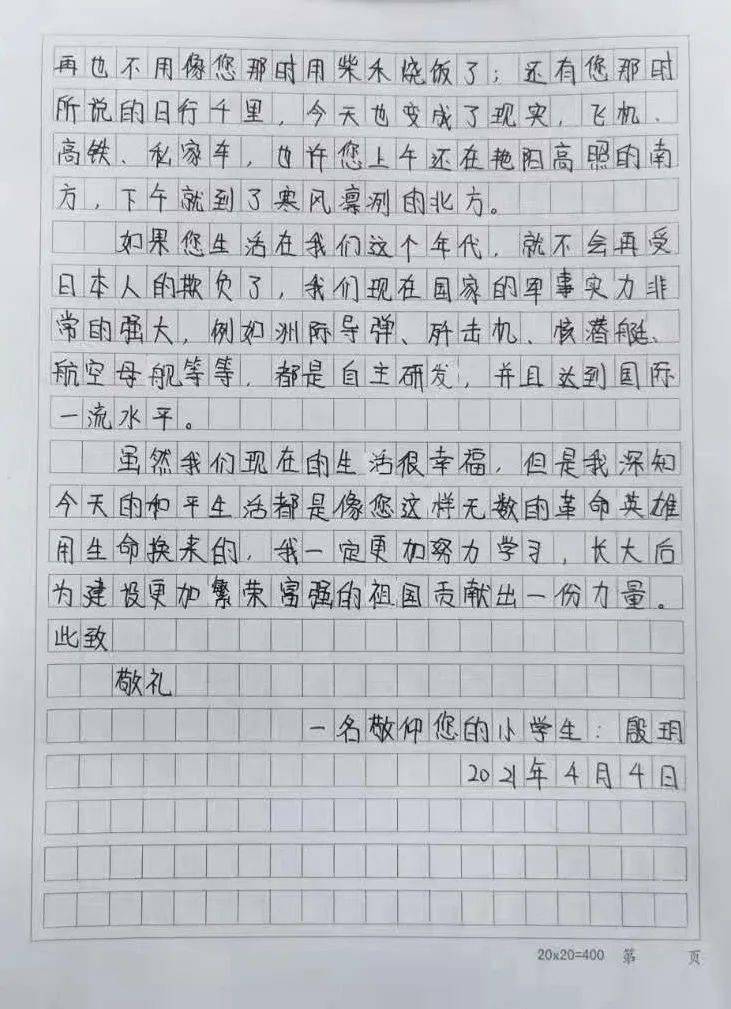 再也不用像您那时用柴禾烧饭了；还有您那时
所说的日行千里，今天也变成了现实，飞机、
高铁、私家车，也许您上午还在艳阳高照的南
方，下午就到了寒风凛冽的北方。
如果您生活在我们这个年代，就不会再受
日本人的欺负了，我们现在国家的军事实力非
常的强大，例如洲际导弹、歼击机、核潜艇、
航空母舰等等，都是自主研发，并且达到国际
一流水平。
虽然我们现在的生活很幸福，但是我深知
今天的和平生活都是像您这样无数的革命英雄
用生命换来的，我一定更加努力学习，长大后
为建设更加繁荣富强的祖国贡献出一份力量。
此致
敬礼
一名敬仰您的小学生：殷玥
2021年4月4日
20x20=400 第 页